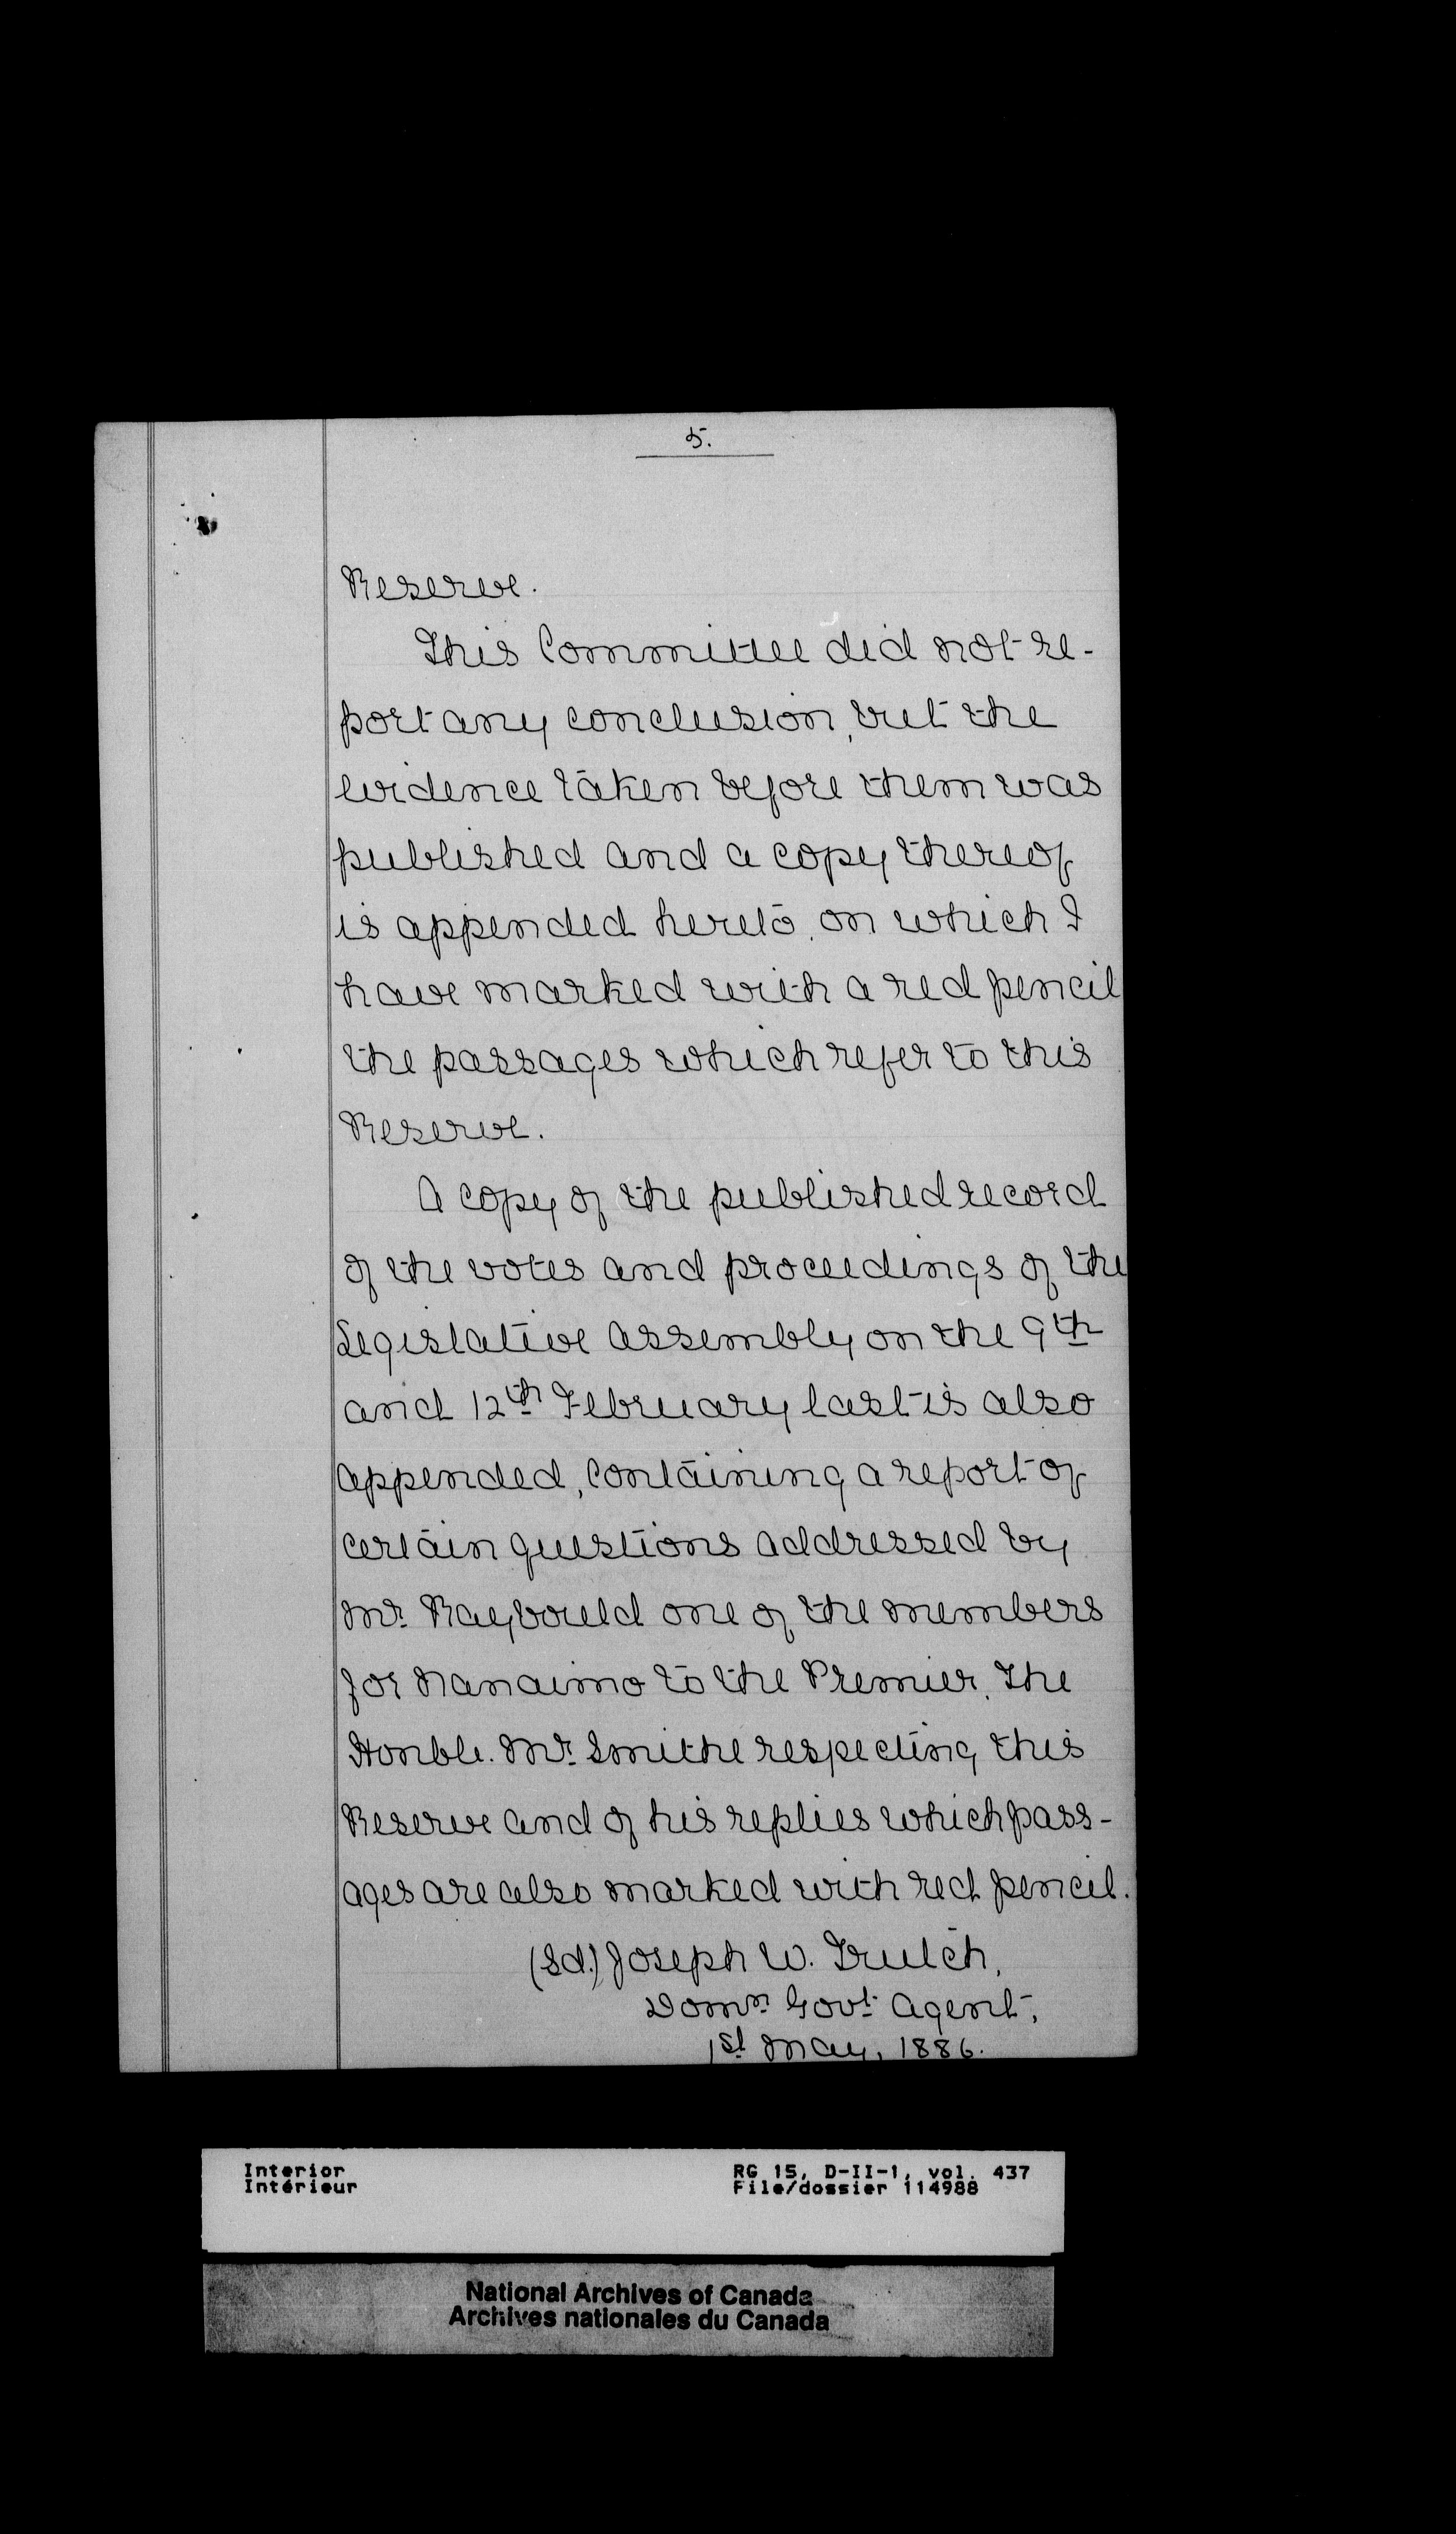 5.
Reserve.
This Committee did not re-
port any conclusion, but the
evidence taken before them was
published and a copy thereof
is appended hereto, on which I
have marked with a red pencil
the passages which refer to this
Reserve.
A copy of the published record
of the votes and proceedings of the
Legislative Assembly on the 9th
and 12th February last is also
appended, containing a report of
certain questions addressed by
Mr. Raybould one of the members
for Nanaimo to the Premier, The
Honble. Mr. Smithe respecting this
Reserve and of his replies which pass-
ages are also marked with red pencil.
(Sd.) Joseph W. Trutch,
Domn. Govt. Agent,
1st May, 1886.
Interior
Intérieur
RG 15, D-II-1, vol. 437
File/dossier 114988
National Archives of Canada
Archives nationales du Canada